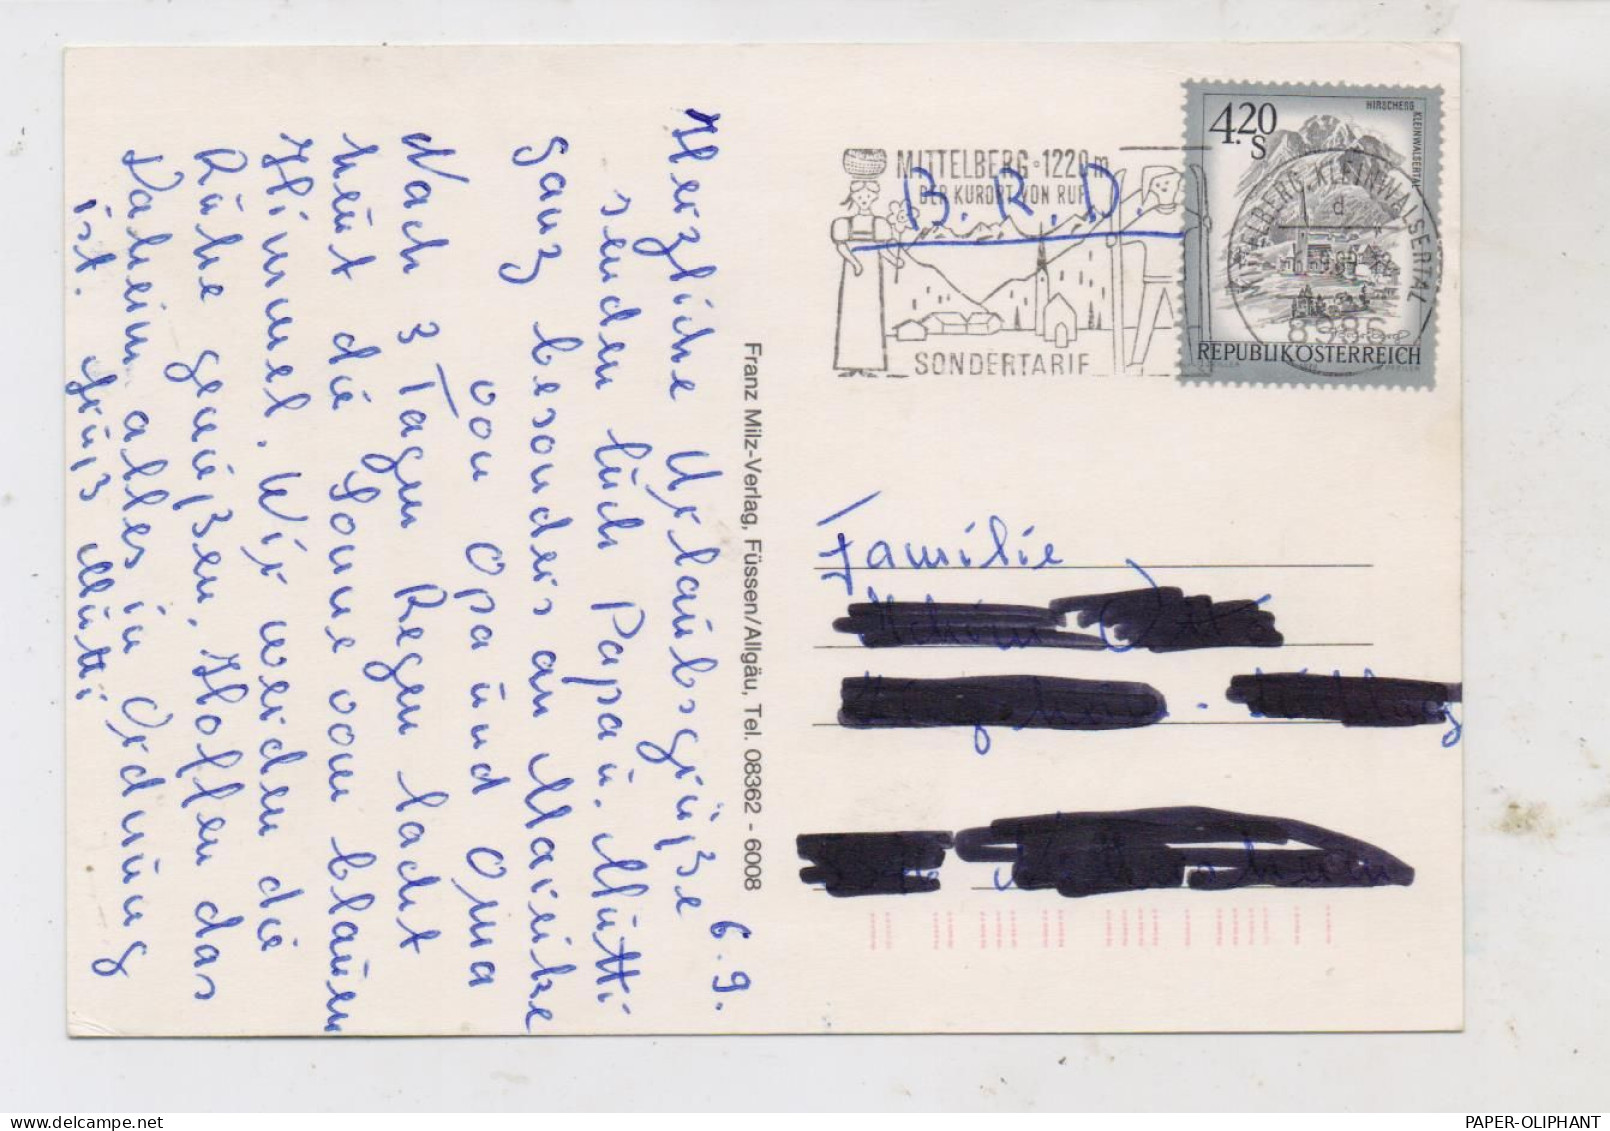 6.9.
Herzliche Urlaubsgrüße
senden Euch Papa u. Mutti
ganz besonders an Mareike
von Opa und Oma
Nach 3 Tagen Regen lacht
heut die Sonne vom blauen
Himmel. Wir werden die
Ruhe genießen. Hoffen das
Daheim alles in Ordnung
ist. Gruß Mutti
Franz Milz-Verlag, Füssen/Allgäu, Tel. 08362 - 6008
MITTELBERG · 1220 m
DER KURORT VON RUF
SONDERTARIF
B. R. D.
4.20
S
HIRSCHEGG
KLEINWALSERTAL
REPUBLIK ÖSTERREICH
MITTELBERG, KLEINWALSERTAL
d
8986
Familie
PAPER-OLIPHANT